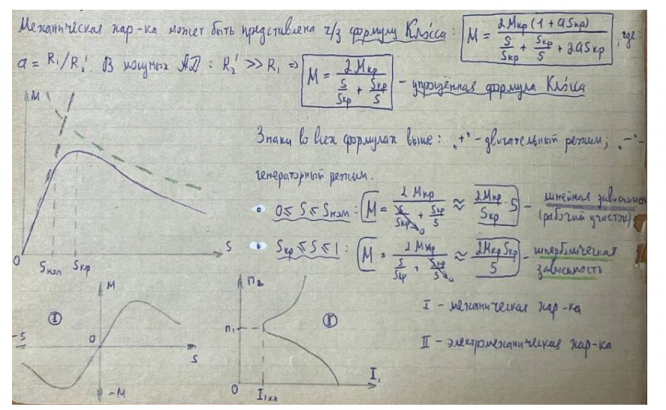 Механическая хар-ка может быть представлена ч/з формулу Клосса: M = 2Mкр(1 + aSкр) / (S/Sкр + Sкр/S + 2aSкр), где:
a = R₁/R₂'. В мощных АД: R₂' >> R₁ => M = 2Mкр / (S/Sкр + Sкр/S) - упрощённая формула Клосса
Знаки во всех формулах выше: "+" - двигательный режим; "-" -
генераторный режим.
0 ≤ S ≤ Sном: M = 2Mкр / (S/Sкр + Sкр/S) ≈ 2Mкр/Sкр · S - линейная зависимость
(рабочий участок)
Sкр ≤ S ≤ 1: M = 2Mкр / (S/Sкр + Sкр/S) ≈ 2MкрSкр/S - гиперболическая
зависимость
M
0
Sном
Sкр
S
I
M
-S
0
S
-M
II
n₂
n₁
0
I₁хх
I₁
I - механическая хар-ка
II - электромеханическая хар-ка